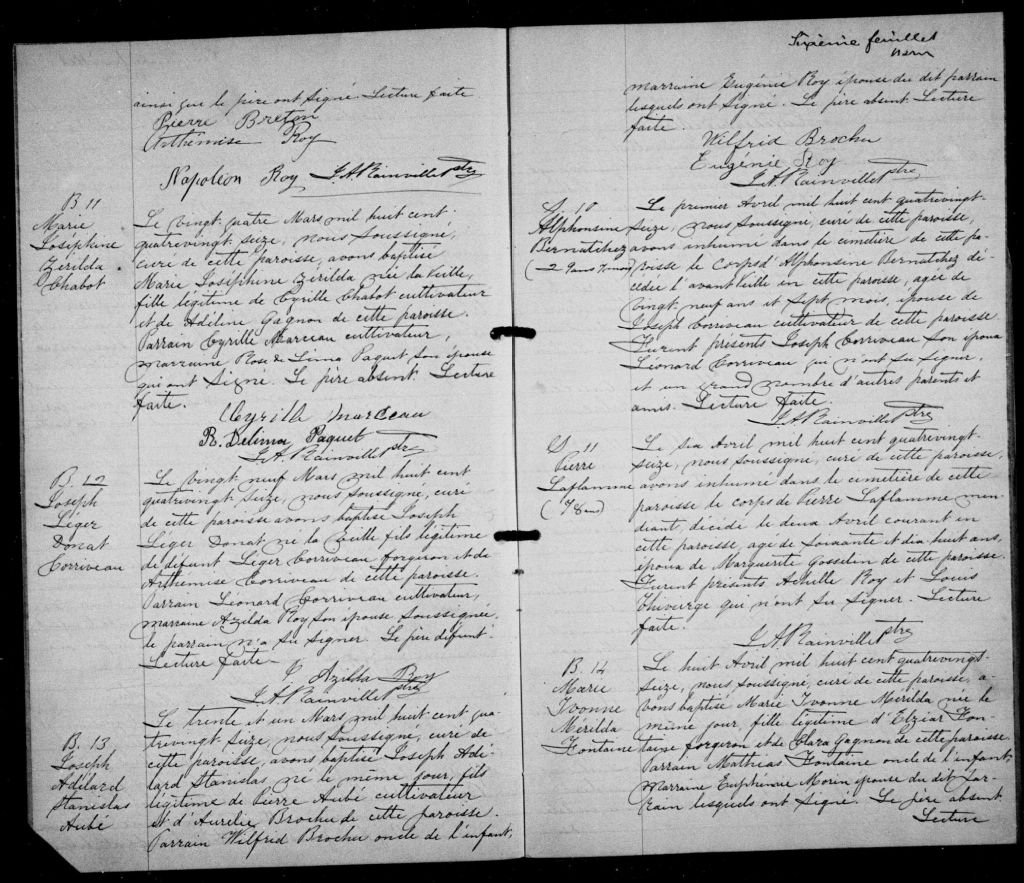 ainsi que le père ont signé. Lecture faite
Pierre Breton
Arthémise Roy
Napoléon Roy J.A.Rainville Ptre
B 11
Marie
Joséphine
Zérilda
Chabot
Le vingt quatre Mars mil huit cent
quatrevingt seize, nous soussigné,
curé de cette paroisse, avons baptisé
Marie Joséphine Zérilda née la veille,
fille légitime de Cyrille Chabot cultivateur
et de Adéline Gagnon de cette paroisse.
Parrain Cyrille Marceau cultivateur,
marraine Rose de Lima Paquet son épouse
qui ont signé. Le père absent. Lecture
faite.
Cyrille Marceau
R. Delima Paquet
J.A.Rainville Ptre
B. 12
Joseph
Léger
Donat
Corriveau
Le vingt neuf Mars mil huit cent
quatrevingt seize, nous soussigné, curé
de cette paroisse avons baptisé Joseph
Léger Donat né la veille fils légitime
de défunt Léger Corriveau forgeron et de
Arthemise Corriveau de cette paroisse.
Parrain Léonard Corriveau cultivateur,
marraine Azilda Roy son épouse soussignée,
le parrain n'a su signer. Le père défunt.
Lecture faite.
Azilda Roy
J.A.Rainville Ptre
B. 13
Joseph
Adélard
Stanislas
Aubé
Le trente et un Mars mil huit cent qua-
trevingt seize, nous soussigné, curé de
cette paroisse, avons baptisé Joseph Adé-
lard Stanislas né le même jour, fils
légitime de Pierre Aubé cultivateur
et d'Aurelie Brochu de cette paroisse.
Parrain Wilfrid Brochu oncle de l'enfant,
Sixième feuillet
marraine Eugénie Roy épouse du dit parrain
lesquels ont signé. Le père absent. Lecture
faite.
Wilfrid Brochu
Eugénie Roy
J.A.Rainville Ptre
S. 10
Alphonsine
Bernatchez
Le premier Avril mil huit cent quatrevingt-
seize, nous soussigné, curé de cette paroisse,
avons inhumé dans le cimetière de cette pa-
roisse le corps d'Alphonsine Bernatchez dé-
cédée l'avant veille en cette paroisse, agée de
vingt neuf ans et sept mois, épouse de
Joseph Corriveau cultivateur de cette paroisse.
Furent présents Joseph Corriveau son époux
Léonard Corriveau qui n'ont su signer,
et un grand nombre d'autres parents et
amis. Lecture faite.
J.A.Rainville Ptre
S. 11
Pierre
Laflamme
(78 ans)
Le six Avril mil huit cent quatrevingt-
seize, nous soussigné, curé de cette paroisse,
avons inhumé dans le cimetière de cette
paroisse le corps de Pierre Laflamme men-
diant, décédé le deux Avril courant en
cette paroisse, agé de soixante et dix huit ans,
époux de Marguerite Gosselin de cette paroisse.
Furent présents Achille Roy et Louis
Thivierge qui n'ont su signer. Lecture
faite.
J.A.Rainville Ptre
B. 14
Marie
Yvonne
Mérilda
Fontaine
Le huit Avril mil huit cent quatrevingt-
seize, nous soussigné, curé de cette paroisse, a-
vons baptisé Marie Yvonne Mérilda née le
même jour fille légitime d'Elzéar Fon-
taine forgeron et de Clara Gagnon de cette paroisse.
Parrain Mathias Fontaine oncle de l'enfant,
marraine Euphémie Morin épouse du dit Par-
rain lesquels ont signé. Le père absent.
Lecture